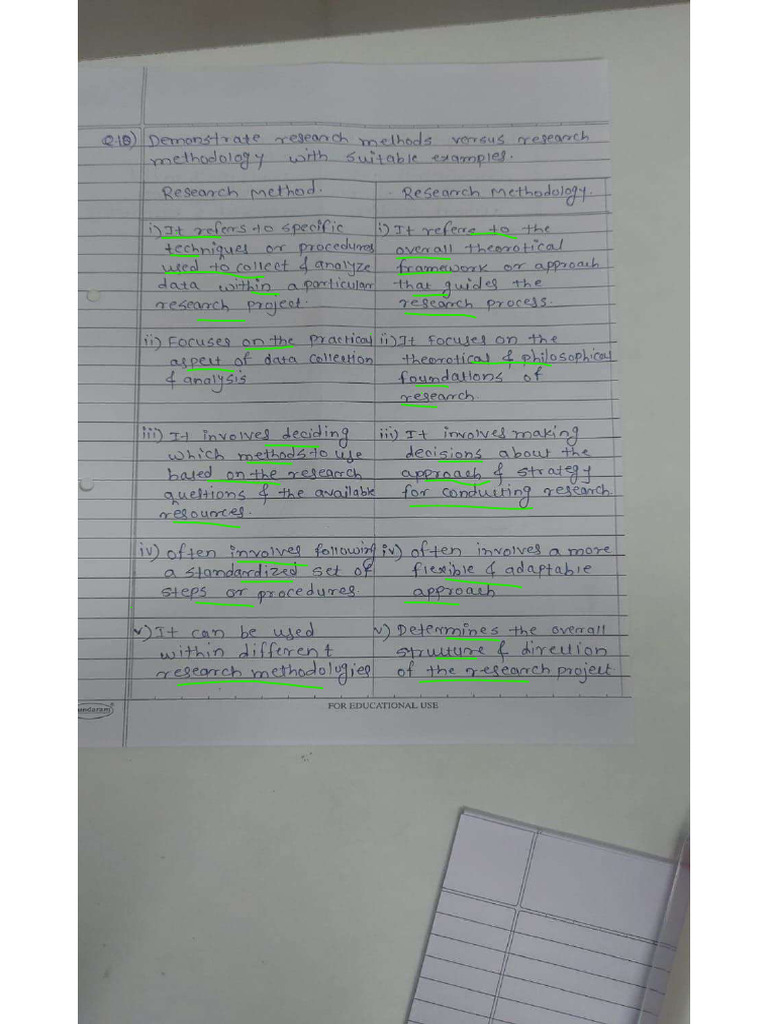 Q.1B) Demonstrate research methods versus research
methodology with suitable examples.
Research Method.
i) It refers to specific
techniques or procedures
used to collect & analyze
data within a particular
research project.
ii) Focuses on the practical
aspect of data collection
& analysis
iii) It involves deciding
which methods to use
based on the research
questions & the available
resources.
iv) Often involves following
a standardized set of
steps or procedures.
v) It can be used
within different
research methodologies
Research Methodology.
i) It referre to the
overall theorotical
framework or approach
that guides the
research process.
ii) It focuses on the
theorotical & philosophical
foundations of
research.
iii) It involves making
decisions about the
approach & strategy
for conducting research.
iv) Often involves a more
flexible & adaptable
approach
v) Determines the overall
structure & direction
of the research project
FOR EDUCATIONAL USE